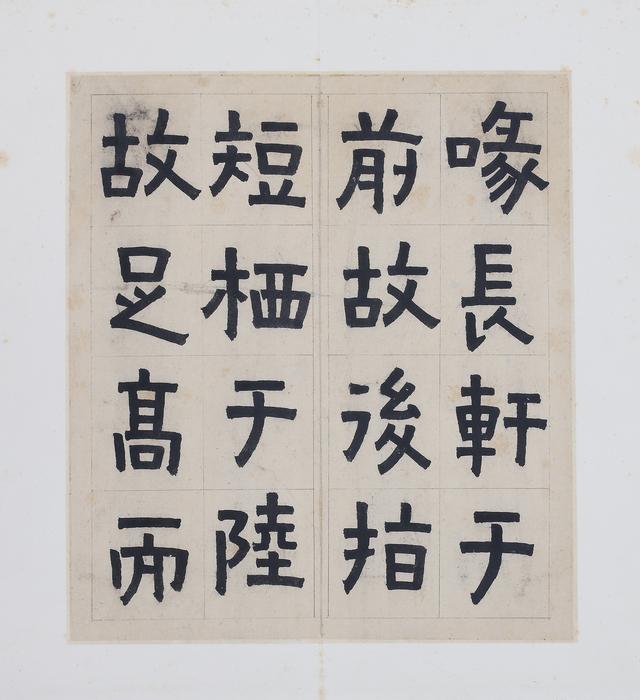 喙長軒于
前故後指
短栖于陸
故足髙而